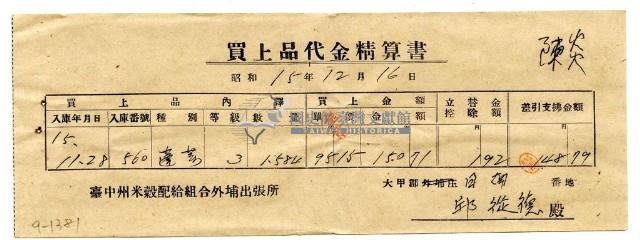 買上品代金精算書
陳炎
昭和 15年 12月 16日
買上品內譯 買上金額 立替控除金額 差引支拂金額
入庫年月日 入庫番號 種別 等級 數量 單價 金額
15.
11.28 560 蓬萊 3 1.584 95 15 150 71 1 92 148 79
臺中州米穀配給組合外埔出張所
大甲郡外埔庄 番地
邱 德 殿
國史館臺灣文獻館
TAIWAN HISTORICA
9-1381